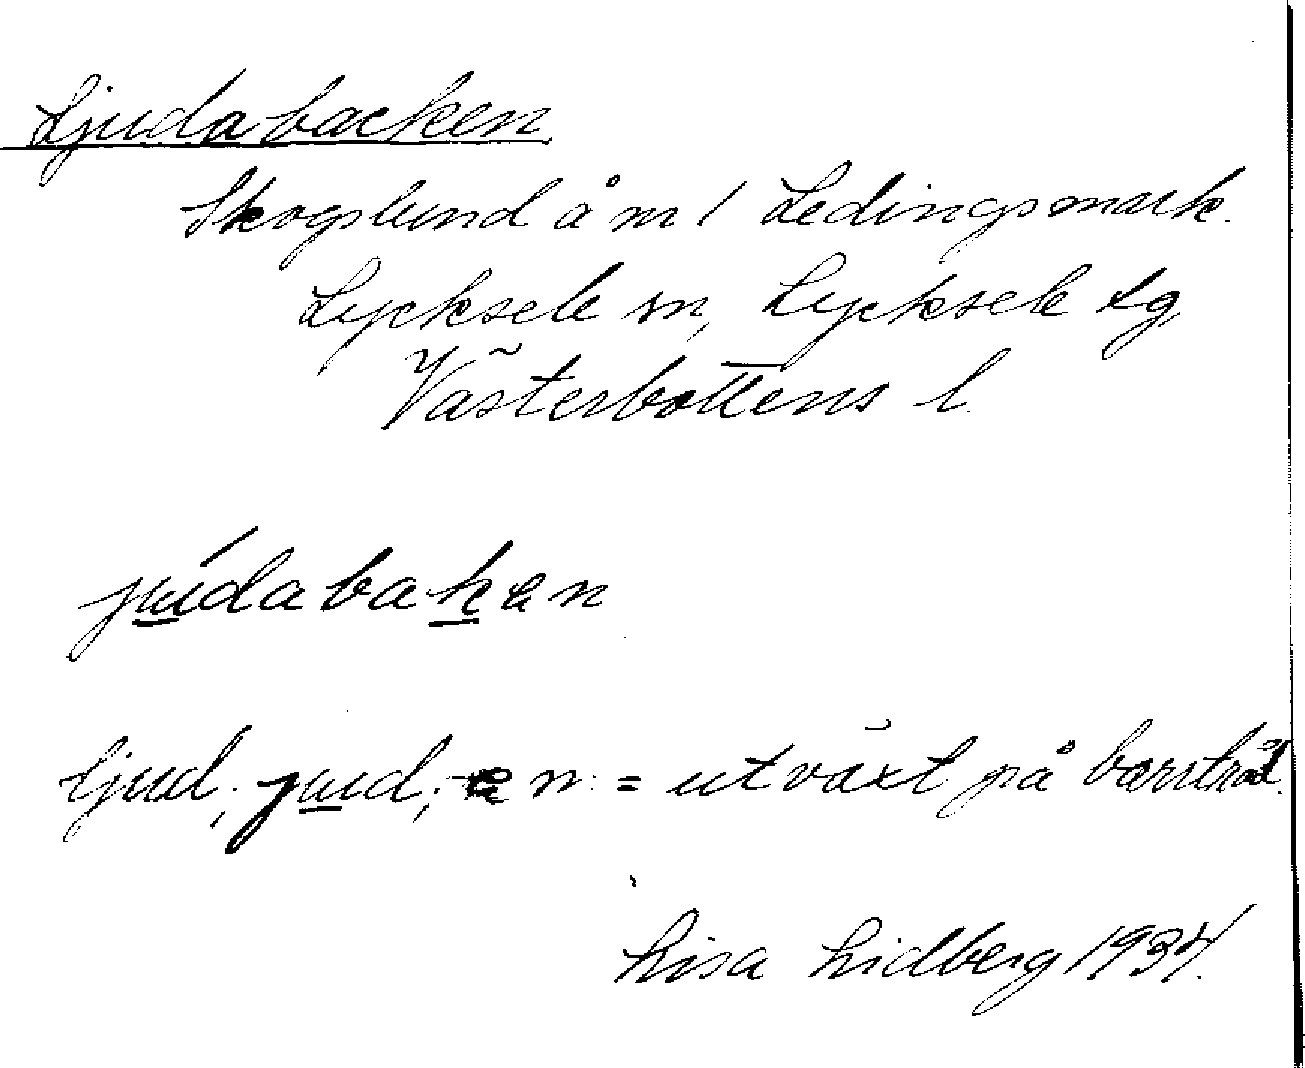 Ljudabacken
Skogslund å m / Ledingsmark.
Lycksele sn, Lycksele lg
Västerbottens l.
júdabaken
ljud, jud, -en = utväxt på barrträd.
Lisa Lidberg 1934.